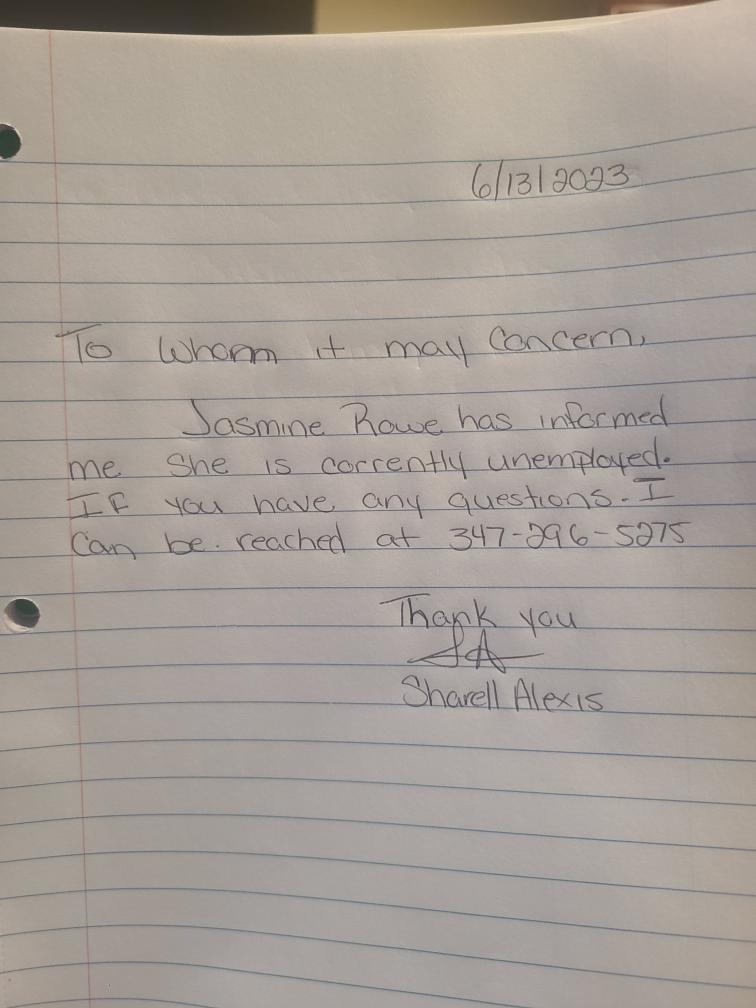 6/13/2023
To Whom it may Concern,
Jasmine Rowe has informed
me She is corrently unemployed.
IF you have any questions. I
Can be. reached at 347-296-5275
Thank you
SA
Sharell Alexis